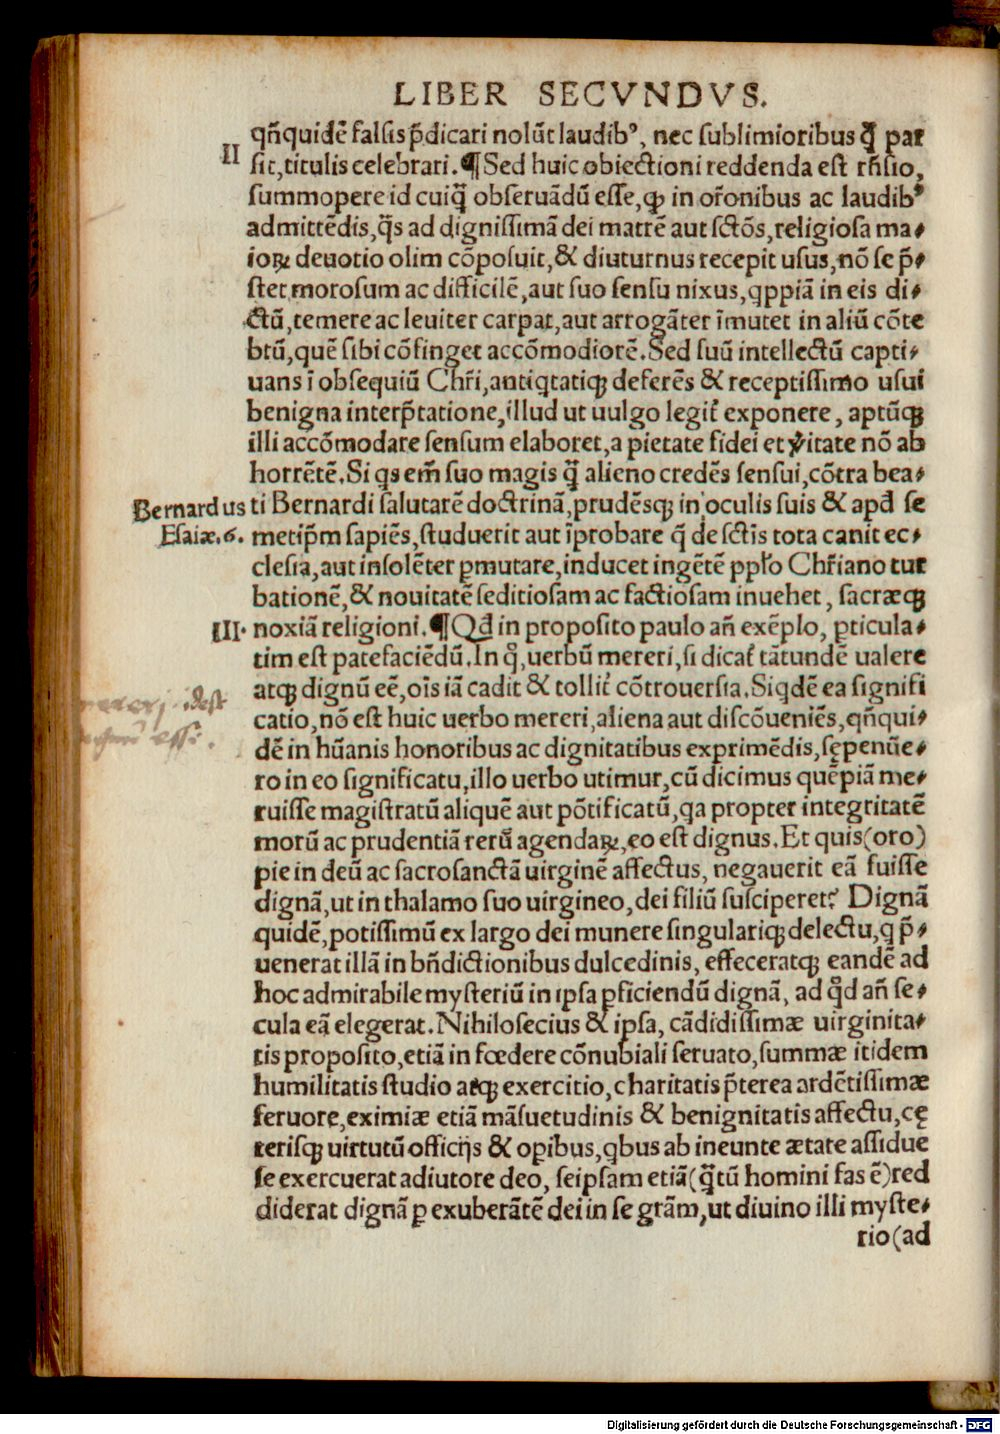 LIBER SECVNDVS.
qñquidẽ falsis p̃dicari nolũt laudibꝰ, nec sublimioribus q̃ par
II
sit, titulis celebrari. ¶ Sed huic obiectioni reddenda est rñsio,
summopere id cuiq̃ obseruãdũ esse, ꝙ in or̃onibus ac laudibꝰ
admittẽdis, q̃s ad dignissimã dei matrẽ aut sctõs, religiosa ma⸗
ioꝝ deuotio olim cõposuit, & diuturnus recepit usus, nõ se p̃⸗
stet morosum ac difficilẽ, aut suo sensu nixus, qppiã in eis di⸗
ctũ, temere ac leuiter carpat, aut arrogãter ĩmutet in aliũ cõte
btũ, quẽ sibi cõfinget accõmodiorẽ. Sed suũ intellectũ capti⸗
uans ĩ obsequiũ Chr̃i, antiqtatiqꝫ deferẽs & receptissimo usui
benigna interp̃tatione, illud ut uulgo legit̃ exponere, aptũqꝫ
illi accõmodare sensum elaboret, a pietate fidei et ṽitate nõ ab
horrẽtẽ. Si qs em̃ suo magis q̃ alieno credẽs sensui, cõtra bea⸗
Bernardus ti Bernardi salutarẽ doctrinã, prudẽsqꝫ in oculis suis & apđ se
Esaiæ.6. metip̃m sapiẽs, studuerit aut ĩprobare q̃ de sctĩs tota canit ec⸗
clesia, aut insolẽter ꝑmutare, inducet ingẽtẽ ppl̃o Chr̃iano tur
bationẽ, & nouitatẽ seditiosam ac factiosam inuehet, sacræqꝫ
III. noxiã religioni. ¶ Qđ in proposito paulo añ exẽplo, ꝑticula⸗
tim est patefaciẽdũ. In qͦ, uerbũ mereri, si dicat̃ tãtundẽ ualere
atqꝫ dignũ eẽ, oĩs iã cadit & tollit̃ cõtrouersia. Siqdẽ ea signifi
catio, nõ est huic uerbo mereri, aliena aut discõueniẽs, qñqui⸗
dẽ in hũanis honoribus ac dignitatibus exprimẽdis, sępenũe⸗
ro in eo significatu, illo uerbo utimur, cũ dicimus quẽpiã me⸗
ruisse magistratũ aliquẽ aut põtificatũ, qa propter integritatẽ
morũ ac prudentiã rerũ agendaꝝ, eo est dignus. Et quis (oro)
pie in deũ ac sacrosanctã uirginẽ affectus, negauerit eã fuisse
dignã, ut in thalamo suo uirgineo, dei filiũ susciperet? Dignã
quidẽ, potissimũ ex largo dei munere singulariqꝫ delectu, q p̃⸗
uenerat illã in bñdictionibus dulcedinis, effeceratqꝫ eandẽ ad
hoc admirabile mysteriũ in ipsa ꝑficiendũ dignã, ad qđ añ se⸗
cula eã elegerat. Nihilosecius & ipsa, cãdidissimæ uirginita⸗
tis proposito, etiã in fœdere cõnubiali seruato, summæ itidem
humilitatis studio atqꝫ exercitio, charitatis p̃terea ardẽtissimæ
feruore, eximiæ etiã mãsuetudinis & benignitatis affectu, cę
terisqꝫ uirtutũ officijs & oꝑibus, qbus ab ineunte ætate assidue
se exercuerat adiutore deo, seipsam etiã (q̃tũ homini fas ẽ) red
diderat dignã ꝑ exuberãtẽ dei in se grãm, ut diuino illi myste⸗
rio (ad
Digitalisierung gefördert durch die Deutsche Forschungsgemeinschaft - DFG